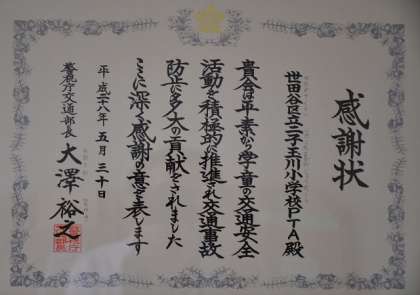 感謝状
世田谷区立二子玉川小学校PTA殿
貴会は平素から学童の交通安全
活動を積極的に推進され交通事故
防止に多大の貢献をされました
ここに深く感謝の意を表します
平成二十八年五月三十日
警視庁交通部長 大澤裕之